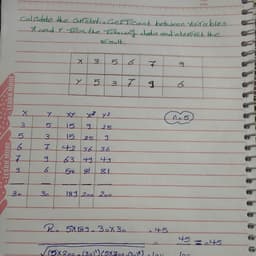 Calculate the correlation coefficient between variables
X and Y from the following data and interpret the
result.
X 3 5 6 7 9
Y 5 3 7 9 6
n=5
X Y XY X² Y²
3 5 15 9 25
5 3 15 25 9
6 7 42 36 36
7 9 63 49 49
9 6 54 81 81
30 30 189 200 200
R = 5×189 - 30×30 = 45
45 = .45
100